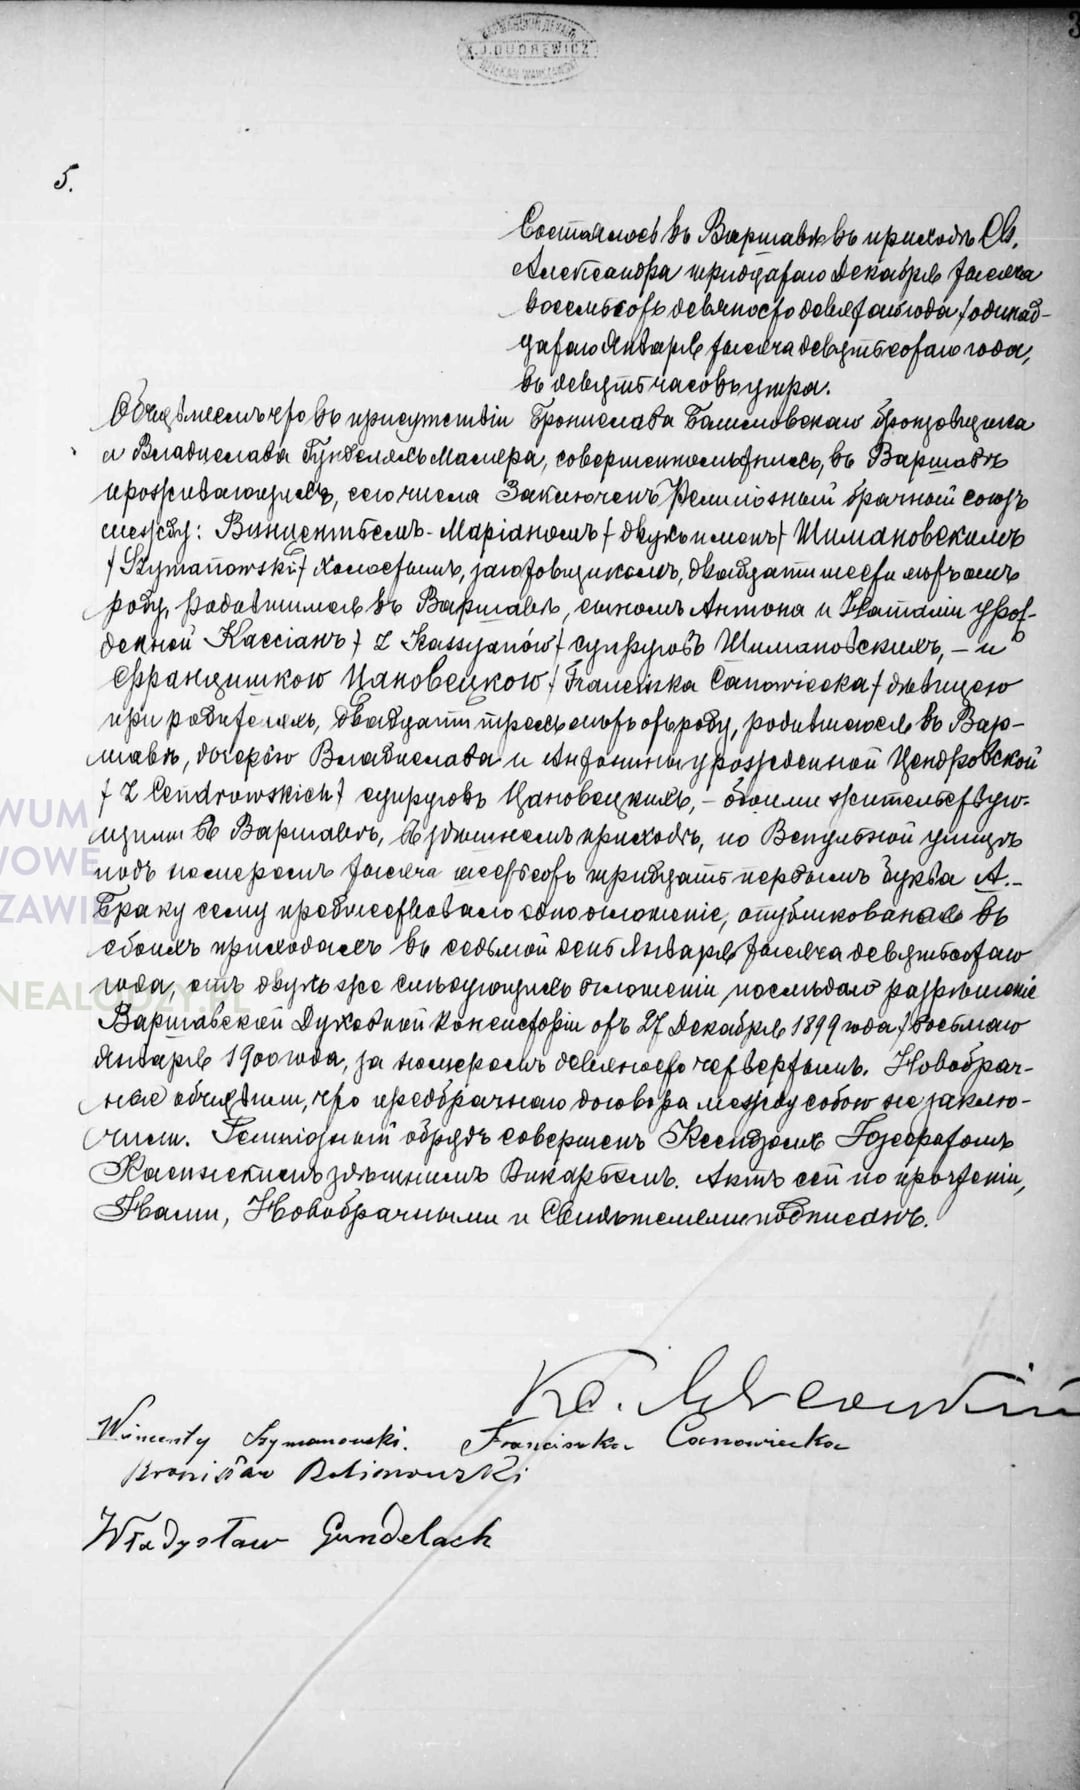 X.J.DUDREWICZ
3
5.
Состоялось въ Варшавѣ въ приходѣ Св.
Александра тридцатаго Декабря тысяча
восемьсотъ девяносто девятаго года / одинад-
цатаго Января тысяча девятьсотаго года,
въ девять часовъ утра.
Объявляемъ что въ присутствіи Бронислава Болимовскаго бронзовщика
и Владислава Гунделяхъ Маляра, совершеннолѣтнихъ, въ Варшавѣ
проживающихъ, сего числа Заключенъ Религіозный брачный союзъ
между: Винцентьемъ-Маріаномъ / двухъ именъ / Шимановскимъ
/ Szymanowski / холостымъ, заготовщикомъ, двадцати шести лѣтъ отъ
роду, родившимся въ Варшавѣ, сыномъ Антона и Наталіи урож-
денной Кассіанъ / z Kassyanów / супруговъ Шимановскихъ, – и
Францишкою Цановецкою / Franciszka Canowiecka / дѣвицею
при родителяхъ, двадцати трехъ лѣтъ отъ роду, родившеюся въ Вар-
шавѣ, дочерью Владислава и Антонины урожденной Цендровской
/ z Cendrowskich / супруговъ Цановецкихъ, – обоими жительствую-
щими въ Варшавѣ, въ здѣшнемъ приходѣ, по Вспульной улицѣ
подъ номеромъ тысяча шестьсотъ тридцать первымъ буква А.–
Браку сему предшествовало одно оглашеніе, опубликованное въ
обоихъ приходахъ въ седьмой день Января тысяча девятьсотаго
года, отъ двухъ же слѣдующихъ оглашеній, послѣдало разрѣшеніе
Варшавской Духовной Консисторіи отъ 27 Декабря 1899 года / восьмаго
Января 1900 года, за номеромъ девяносто четвертымъ. Новобрач-
ные объявили, что предбрачнаго договора между собою не заклю-
чили. Религіозный обрядъ совершенъ Ксендзомъ Іозефатомъ
здѣшнимъ Викарьемъ. Актъ сей по прочтеніи,
Нами, Новобрачными и Свидѣтелями подписанъ.
Wincenty Szymanowski. Franciszka Canowiecka
Bronisław Bolimowski
Władysław Gundelach
WUM
WOWE
ZAWIE
NEALODZY.PL